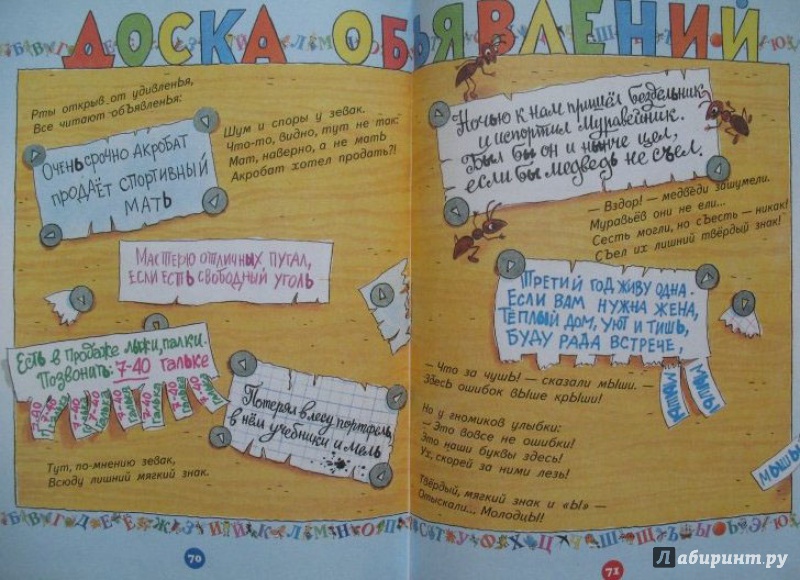 ДОСКА ОБЪЯВЛЕНИЙ
Рты открыв от удивленья,
Все читают объявленья:
Шум и споры у зевак.
Что-то, видно, тут не так:
Мат, наверно, а не мать
Акробат хотел продать?!
Очень срочно Акробат
продаёт спортивный
мать
Мастерю отличных пугал,
если есть свободный уголь
Есть в продаже лыжи, палки.
Позвонать: 7-40 Гальке
7-40 Гальке
7-40 Гальке
7-40 Гальке
7-40 Гальке
7-40 Гальке
7-40 Гальке
Потерял в лесу портфель,
в нём учебники и мель
Тут, по мнению зевак,
Всюду лишний мягкий знак.
70
Ночью к нам пришёл бездельник
и испортил Муравейник.
Был бы он и нынче цел,
если бы медведь не съел.
— Вздор! — медведи зашумели.
Муравьёв они не ели...
Сесть могли, но съесть — никак!
Съел их лишний твёрдый знак!
Третий год живу одна.
Если вам нужна жена,
Тёплый дом, уют и тишь,
Буду рада встрече,
мышы
мышы
мышы
— Что за чушь! — сказали мыши. —
Здесь ошибок выше крыши!
Но у гномиков улыбки:
— Это вовсе не ошибки!
Это наши буквы здесь!
Ух, скорей за ними лезь!
Твёрдый, мягкий знак и «Ы» —
Отыскали... Молодцы!
71
Лабиринт.ру